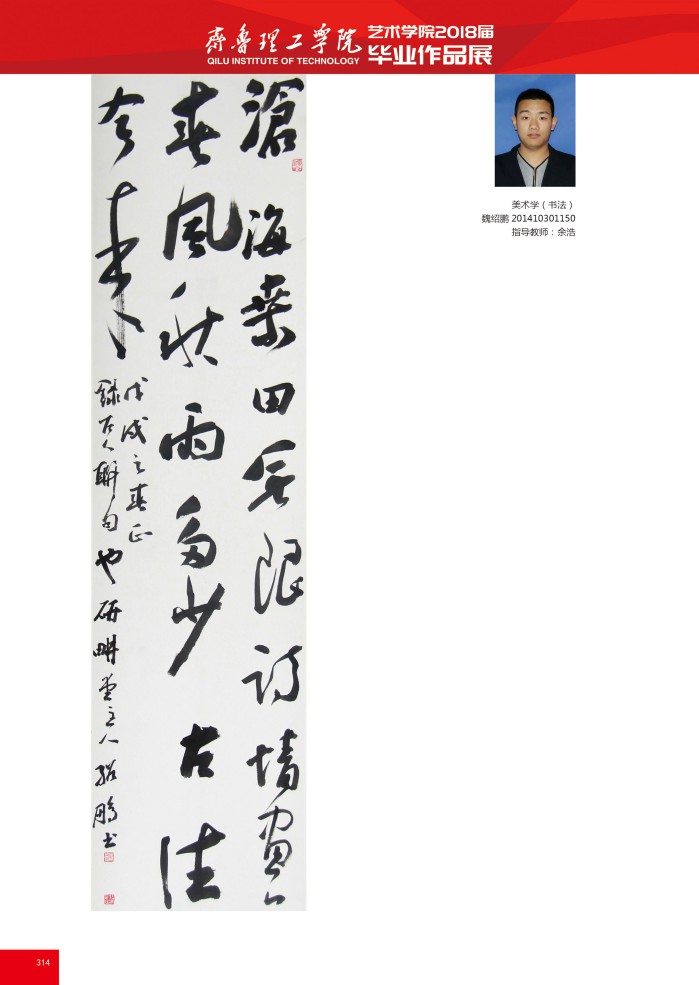 齊魯理工學院
QILU INSTITUTE OF TECHNOLOGY
艺术学院2018届
毕业作品展
滄海桑田无限诗情畫意
春風秋雨多少古往
今来
戊戌之春正
録古人聯句也研畊堂主人紹鵬书
美术学（书法）
魏绍鹏 201410301150
指导教师：余浩
314